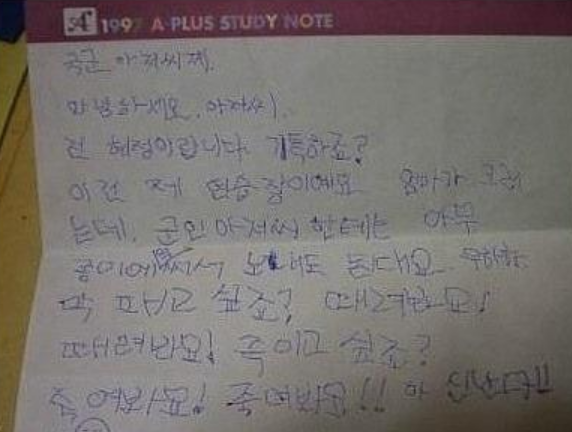 1997 A·PLUS STUDY NOTE
국군 아저씨께.
안녕하세요. 아저씨.
전 혜정이랍니다. 기특하죠?
이건 제 연습장이예요 엄마가 그랬
는데, 군인아저씨 한테는 아무
종이에 써서 보내도 된대요. 푸하하
막 패고 싶죠? 때려봐요!
때려봐요! 죽이고 싶죠?
죽여봐요! 죽여봐요!! 아 신난다!!